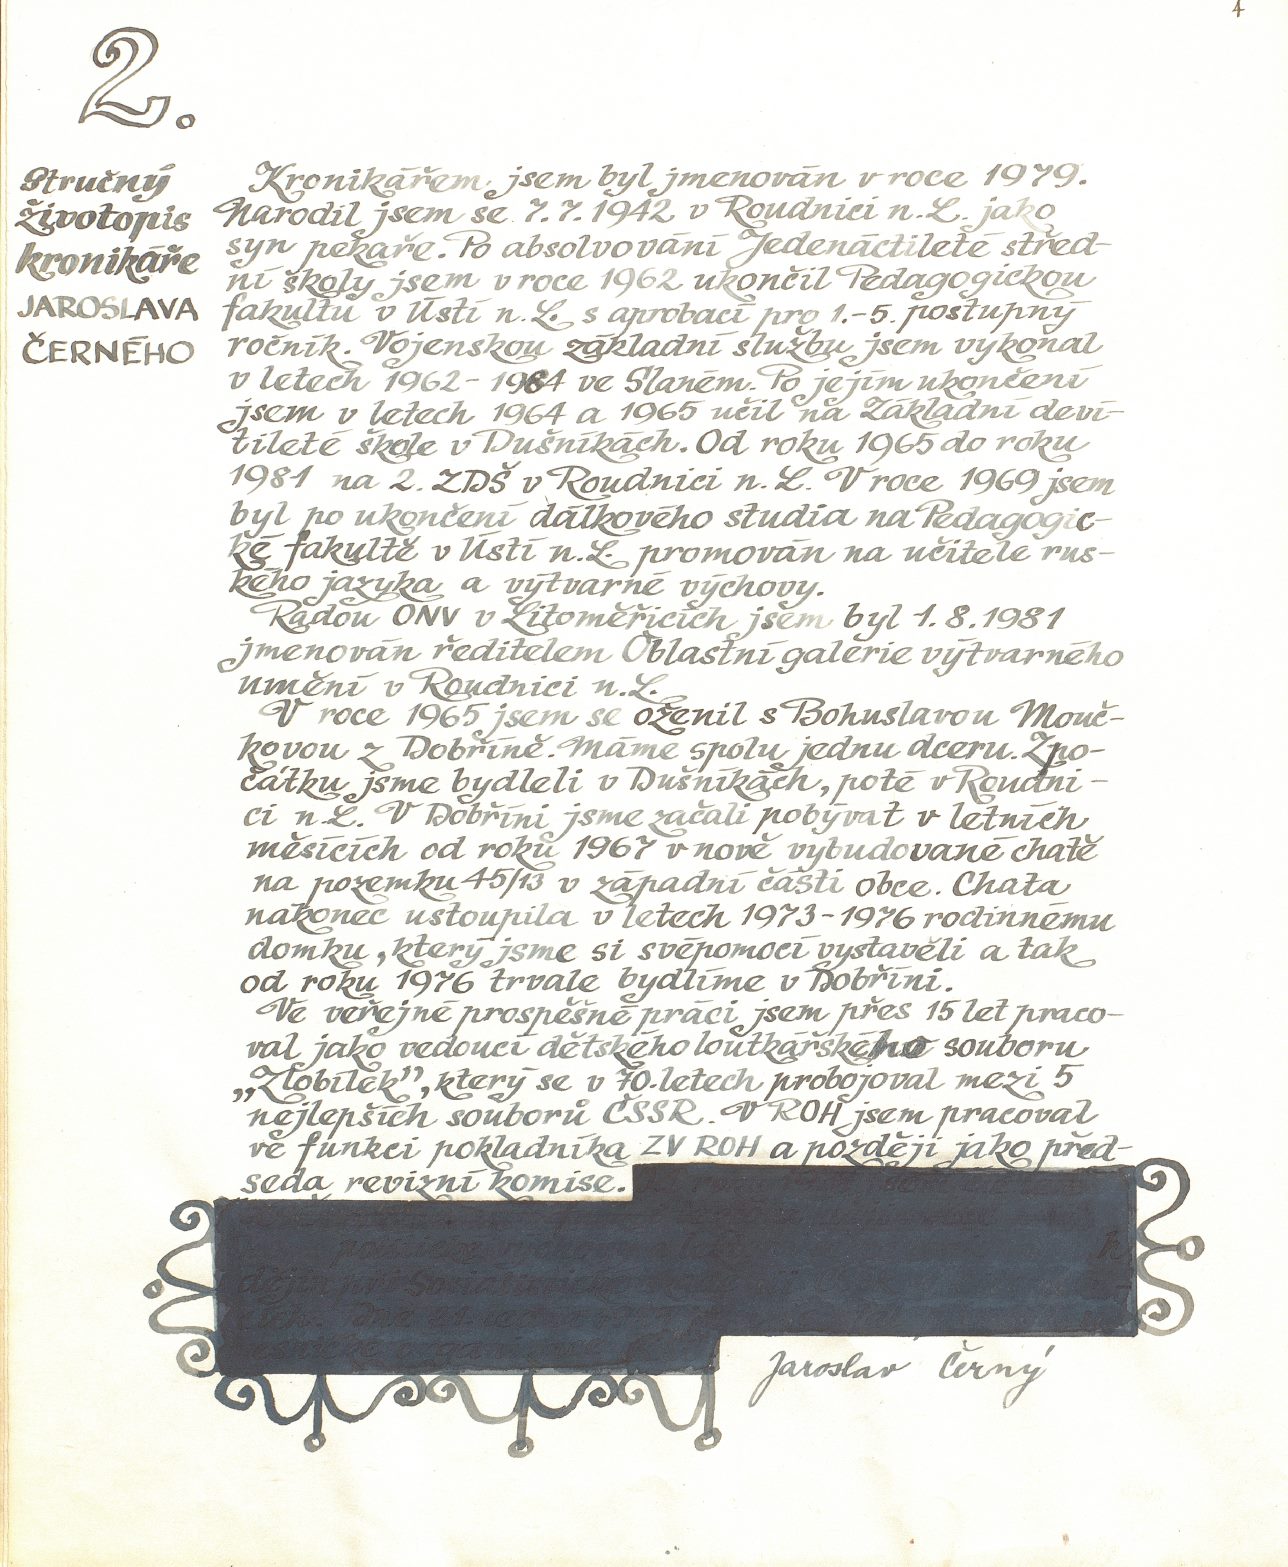 4
2.
Stručný
životopis
kronikáře
JAROSLAVA
ČERNÉHO
Kronikářem jsem byl jmenován v roce 1979.
Narodil jsem se 7.7.1942 v Roudnici n.L. jako
syn pekaře. Po absolvování Jedenáctileté střed-
ní školy jsem v roce 1962 ukončil Pedagogickou
fakultu v Ústí n.L. s aprobací pro 1.-5. postupný
ročník. Vojenskou základní službu jsem vykonal
v letech 1962-1964 ve Slaném. Po jejím ukončení
jsem v letech 1964 a 1965 učil na Základní deví-
tileté škole v Dušníkách. Od roku 1965 do roku
1981 na 2. ZDŠ v Roudnici n.L. V roce 1969 jsem
byl po ukončení dálkového studia na Pedagogic-
ké fakultě v Ústí n.L. promován na učitele rus-
kého jazyka a výtvarné výchovy.
Radou ONV v Litoměřicích jsem byl 1.8.1981
jmenován ředitelem Oblastní galerie výtvarného
umění v Roudnici n.L.
V roce 1965 jsem se oženil s Bohuslavou Mouč-
kovou z Dobříně. Máme spolu jednu dceru. Zpo-
čátku jsme bydleli v Dušníkách, poté v Roudni-
ci n.L. V Dobříni jsme začali pobývat v letních
měsících od roku 1967 v nově vybudované chatě
na pozemku 45/13 v západní části obce. Chata
nakonec ustoupila v letech 1973-1976 rodinnému
domku, který jsme si svépomocí vystavěli a tak
od roku 1976 trvale bydlíme v Dobříni.
Ve veřejně prospěšné práci jsem přes 15 let praco-
val jako vedoucí dětského loutkářského souboru
„Zlobílek", který se v 70. letech probojoval mezi 5
nejlepších souborů ČSSR. V ROH jsem pracoval
ve funkci pokladníka ZV ROH a později jako před-
seda revizní komise.
Jaroslav Černý